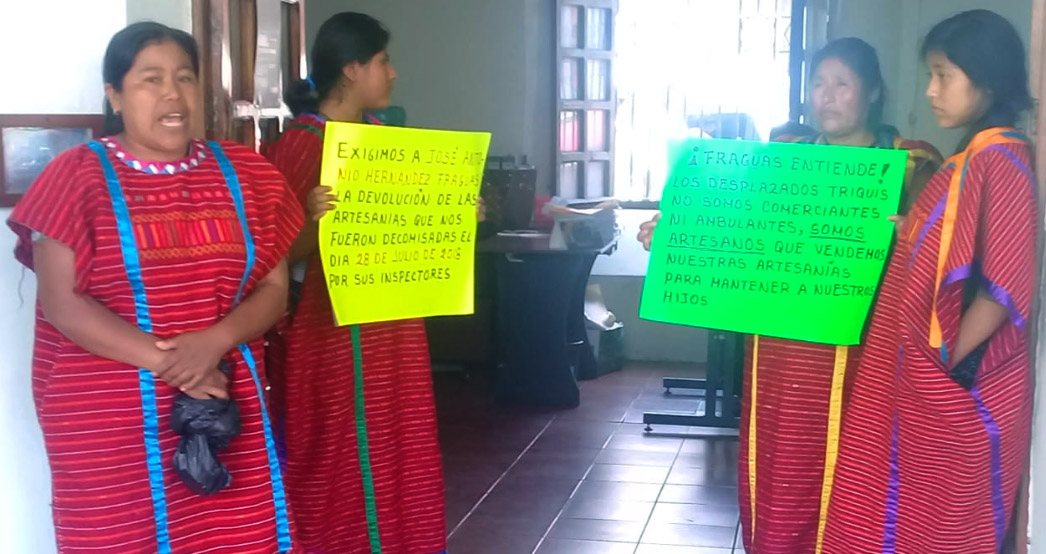 EXIGIMOS A JOSÉ ANTO-
NIO HERNANDEZ FRAGUAS
LA DEVOLUCIÓN DE LAS
ARTESANIAS QUE NOS
FUERON DECOMISADAS EL
DIA 28 DE JULIO DE 2018
POR SUS INSPECTORES
¡FRAGUAS ENTIENDE!
LOS DESPLAZADOS TRIQUIS
NO SOMOS COMERCIANTES
NI AMBULANTES, SOMOS
ARTESANOS QUE VENDEMOS
NUESTRAS ARTESANÍAS
PARA MANTENER A NUESTROS
HIJOS